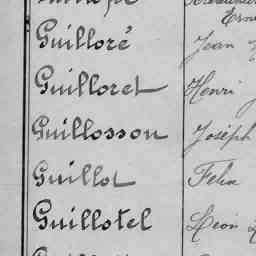 Guilloré Jean
Guilloret Henri
Guillosson Joséph
Guillot Félix
Guillotel Léon